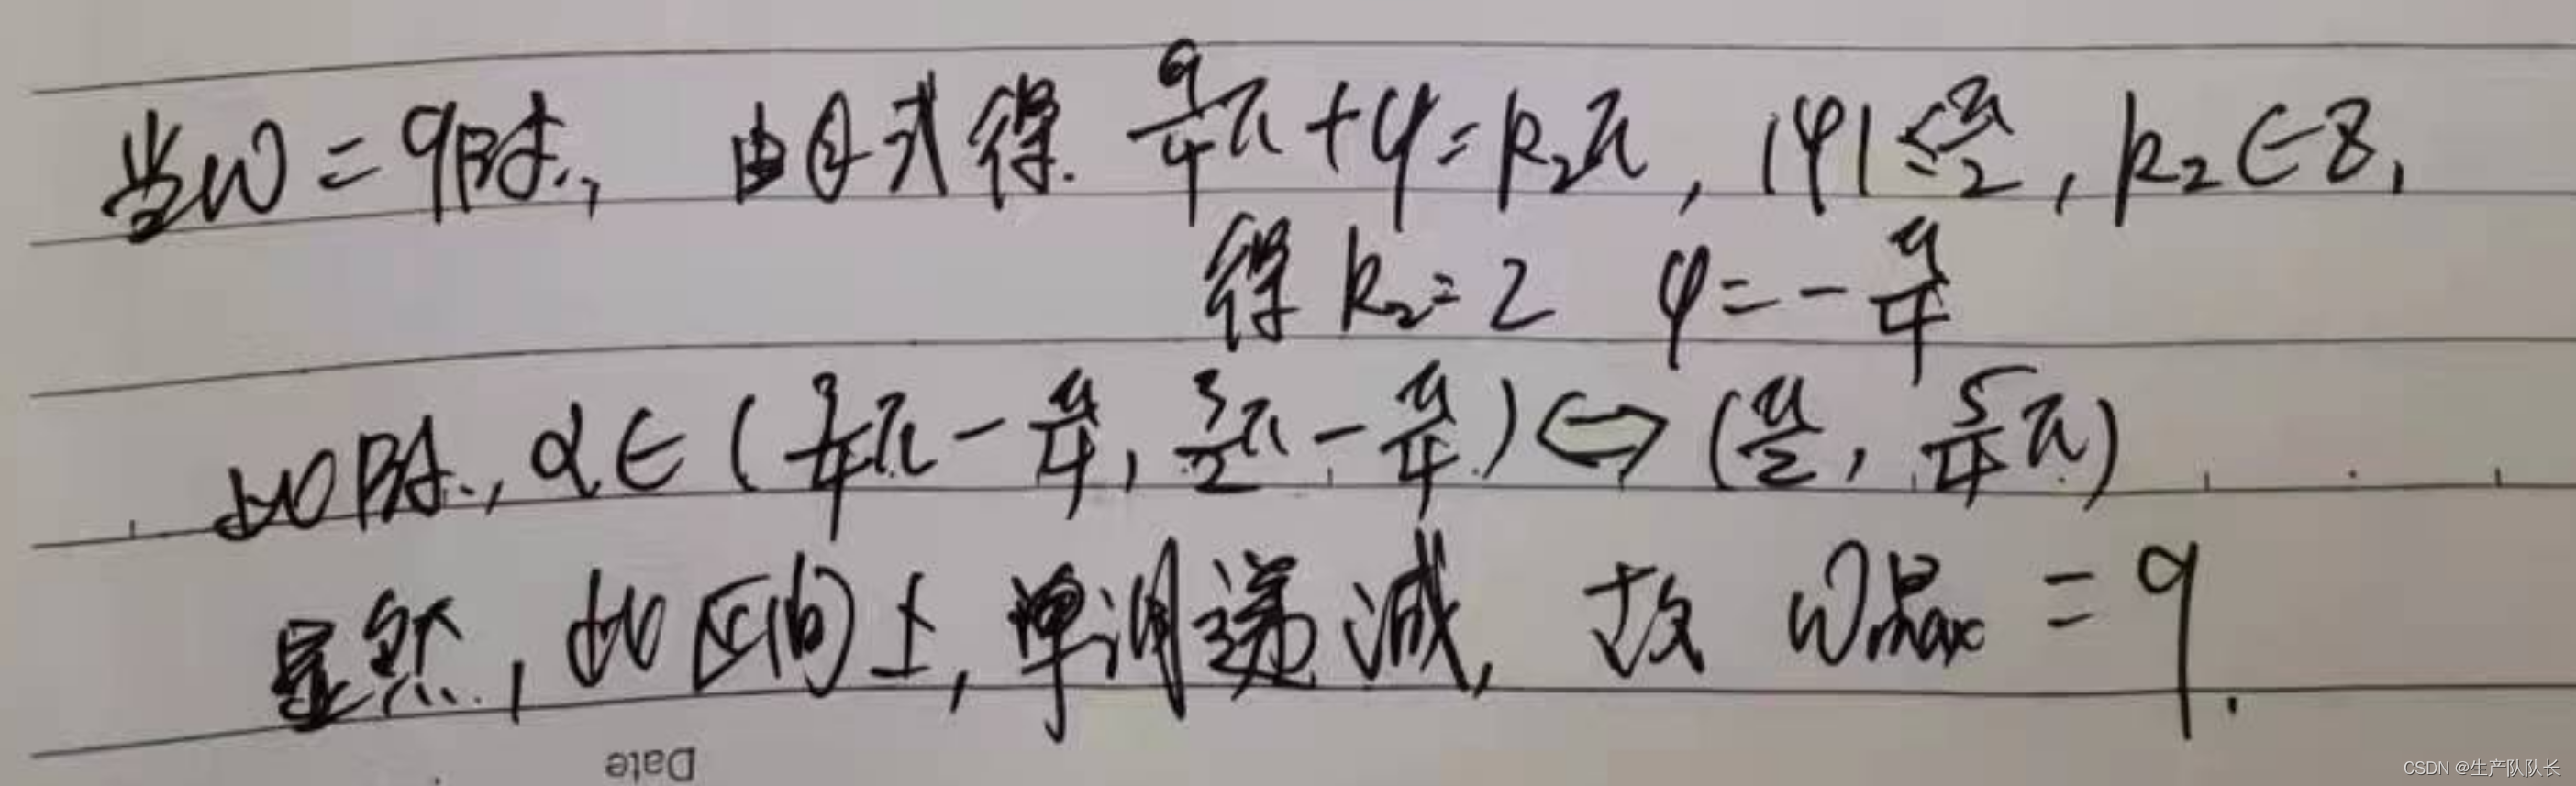 当ω=9时, 由②式得. 9/4π+φ=k₂π, |φ|≤π/2, k₂∈Z,
得 k₂=2 φ=-π/4
此时, α∈(3/4π-π/4, 3/2π-π/4)⇔(π/2, 5/4π)
显然, 此区间上, 单调递减, 故 ωmax=9.
Date
CSDN @生产队队长